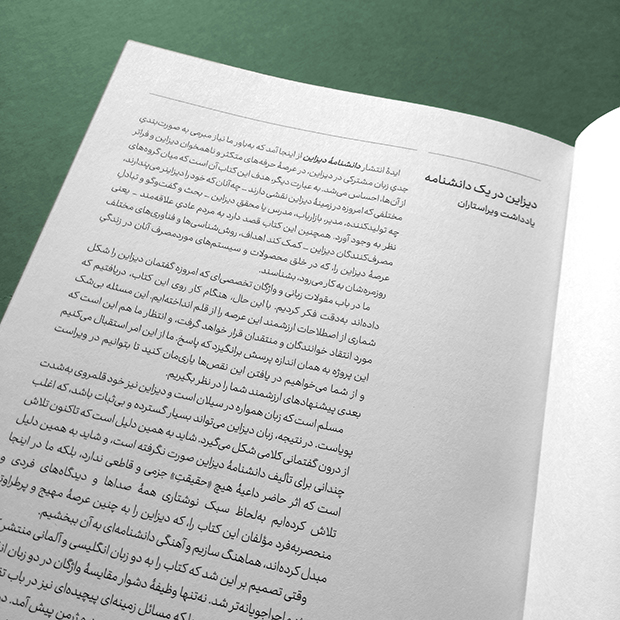 دیزاین در یک دانشنامه
یادداشت ویراستاران
ایدهٔ انتشار دانشنامهٔ دیزاین از اینجا آمد که به‌باور ما نیاز مبرمی به صورت‌بندیِ
جدیِ زبان مشترکی در دیزاین، در عرصهٔ حرفه‌های متکثر و ناهمخوان دیزاین و فراتر
از آن‌ها، احساس می‌شد. به عبارت دیگر، هدف این کتاب آن است که میان گروه‌های
مختلفی که امروزه در زمینهٔ دیزاین نقشی دارند ــ چه آنان که خود را دیزاینر می‌پندارند،
چه تولیدکننده، مدیر، بازاریاب، مدرس یا محقق دیزاین ــ بحث و گفت‌وگو و تبادل
نظر به وجود آورد. همچنین این کتاب قصد دارد به مردم عادیِ علاقه‌مند ــ یعنی
مصرف‌کنندگان دیزاین ــ کمک کند اهداف، روش‌شناسی‌ها و فناوری‌های مختلف
عرصهٔ دیزاین را، که در خلق محصولات و سیستم‌های موردمصرف آنان در زندگی
روزمره‌شان به کار می‌رود، بشناسند.
ما در باب مقولات زبانی و واژگان تخصصی‌ای که امروزه گفتمان دیزاین را شکل
داده‌اند به‌دقت فکر کردیم. با این حال، هنگام کار روی این کتاب، دریافتیم که
شماری از اصطلاحات ارزشمند این عرصه را از قلم انداخته‌ایم. این مسئله بی‌شک
مورد انتقاد خوانندگان و منتقدان قرار خواهد گرفت، و انتظار ما هم این است که
این پروژه به همان اندازه پرسش برانگیزد که پاسخ. ما از این امر استقبال می‌کنیم
و از شما می‌خواهیم در یافتن این نقص‌ها یاری‌مان کنید تا بتوانیم در ویراست
بعدی پیشنهادهای ارزشمند شما را در نظر بگیریم.
مسلم است که زبان همواره در سیلان است و دیزاین نیز خود قلمروی به‌شدت
پویاست. در نتیجه، زبان دیزاین می‌تواند بسیار گسترده و بی‌ثبات باشد، که اغلب
از درون گفتمانی کلامی شکل می‌گیرد. شاید به همین دلیل است که تاکنون تلاش
چندانی برای تألیف دانشنامهٔ دیزاین صورت نگرفته است، و شاید به همین دلیل
است که اثر حاضر داعیهٔ هیچ «حقیقتِ» جزمی و قاطعی ندارد، بلکه ما در اینجا
تلاش کرده‌ایم به‌لحاظ سبک نوشتاری همهٔ صداها و دیدگاه‌های فردی و
منحصربه‌فرد مؤلفان این کتاب را، که دیزاین را به چنین عرصهٔ مهیج و پرطراوتی
مبدل کرده‌اند، هماهنگ سازیم و آهنگی دانشنامه‌ای به آن ببخشیم.
وقتی تصمیم بر این شد که کتاب را به دو زبان انگلیسی و آلمانی منتشر
ماجراجویانه‌تر شد. نه‌تنها وظیفهٔ دشوار مقایسهٔ واژگان در دو زبان
بلکه مسائل زمینه‌ای پیچیده‌ای نیز در باب
پیش آمد.